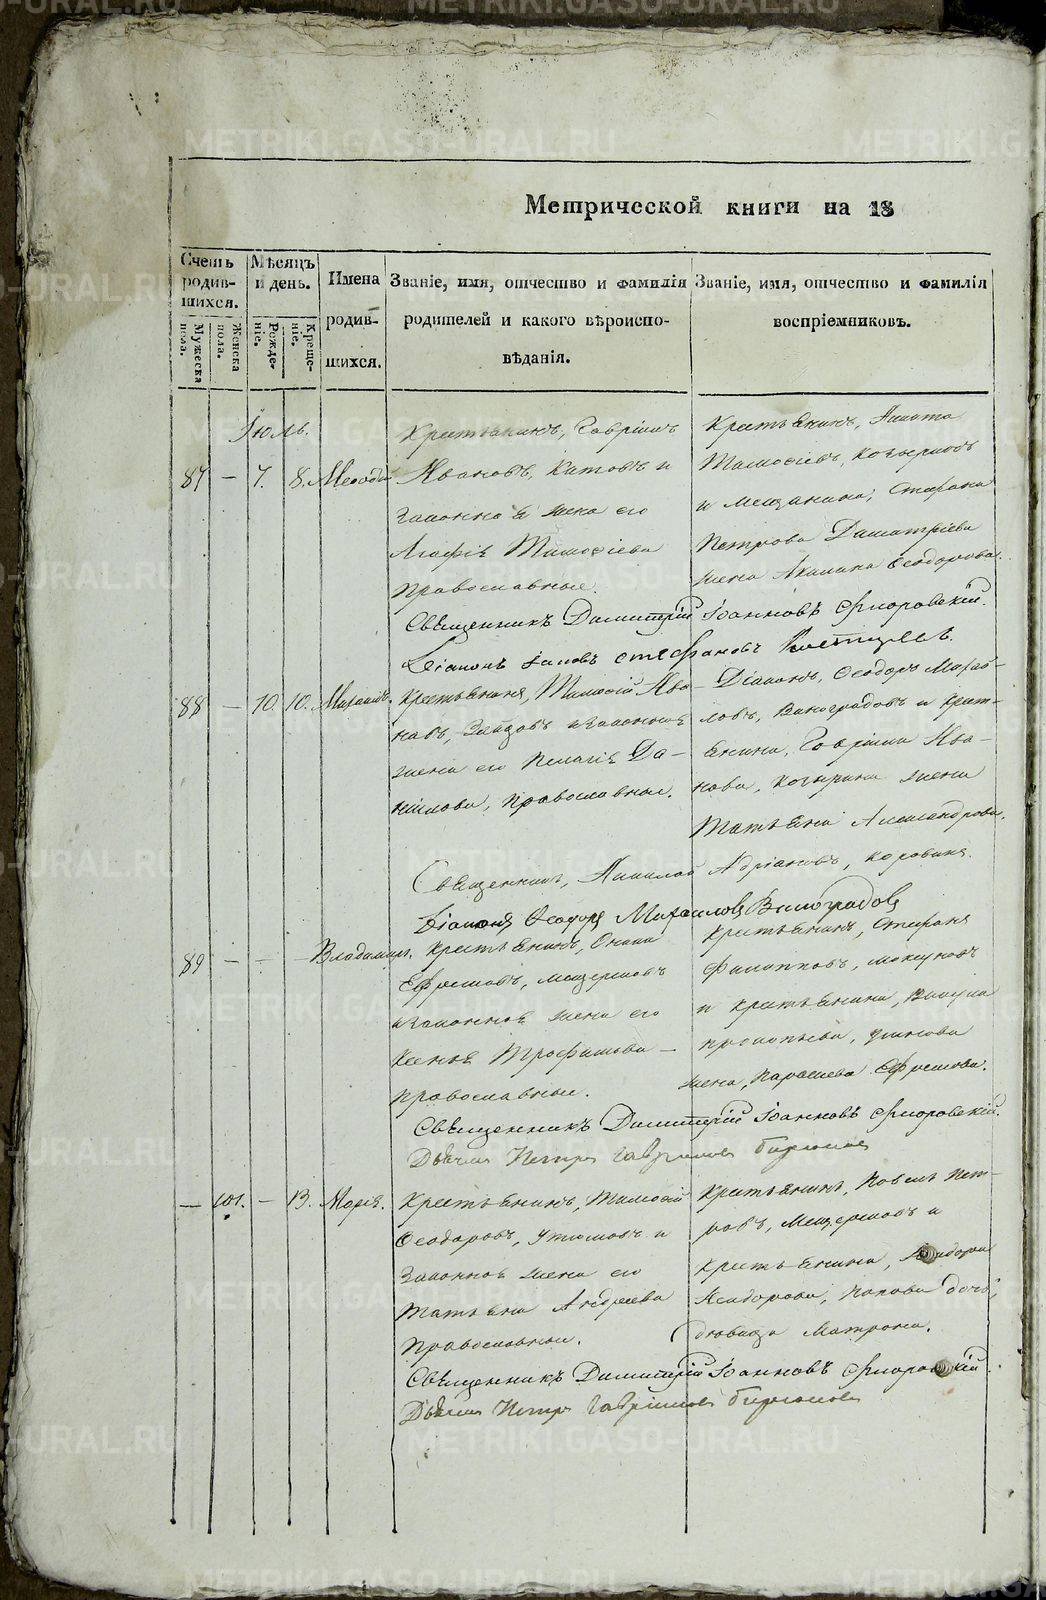 Метрической книги на 18
Счетъ родив-шихся.
Мужеска пола.
Женска пола.
Мѣсяцъ и день.
Рожде-ніе.
Креще-ніе.
Имена родив-шихся.
Званіе, имя, отчество и фамилія
родителей и какого вѣроиспо-
вѣданія.
Званіе, имя, отчество и фамилія
воспріемниковъ.
Іюль.
87 — 7. 8.
Крестьянинъ, Гавріилъ
Ивановъ, Китовъ и
законная жена его
Агафія Тимофіева
православные.
Крестьянинъ, Никита
Тимофіевъ, Козыринъ
и мещанина, Стефана
Петрова
жена Акилина Ѳеодорова.
Священникъ Димитрій Іоанновъ Флоровскій.
Діаконъ Іаковъ Стефановъ
88 — 10. 10. Михаилъ.
Крестьянинъ, Тимофій Ива-
новъ, Зайцовъ и законная
жена его Пелагія Да-
нилова, православные.
Діаконъ, Ѳеодоръ Михай-
ловъ, Виноградовъ и крест-
янина, Гавріила Ива-
нова, Козырина жена
Татьяна Александрова.
Священникъ, Николай Адріановъ, Коровинъ.
Діаконъ Ѳеодоръ Михаиловъ Виноградовъ
89 — — — Владимиръ.
Крестьянинъ, Онисій
Ефремовъ, Мещеряковъ
и законная жена его
Ксенія Трофимова —
православные.
Крестьянинъ, Стефанъ
Филипповъ,
и крестьянина, Викула
Прокопьева,
жена, Парасева Ефремова.
Священникъ Димитрій Іоанновъ Флоровскій.
Дьячекъ Петръ Гавриловъ Бирюковъ
— 101. — 13. Марія.
Крестьянинъ, Тимофій
Ѳеодоровъ, Утюмовъ и
законная жена его
Татьяна Андреева
православные.
Крестьянинъ, Павелъ Пет-
ровъ, Мещеряковъ и
крестьянина,
Исидорова, Попова дочь,
девица Матрона.
Священникъ Димитрій Іоанновъ Флоровскій
Дьячекъ Петръ Гавріиловъ Бирюковъ
METRIKI.GASO-URAL.RU